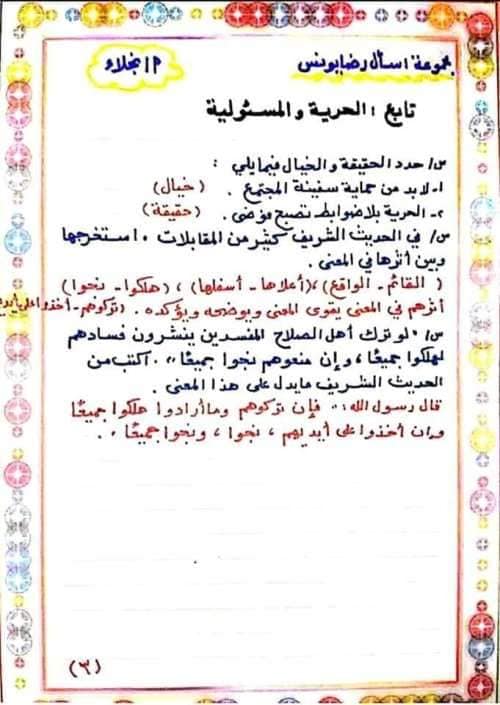 مجموعة اسأل رضا يونس
م/ نجلاء
تابع : الحرية والمسئولية
س/ حدد الحقيقة والخيال فيما يلي :
١- لابد من حماية سفينة المجتمع . (خيال)
٢- الحرية بلا ضوابط تصبح فوضى . (حقيقة)
س/ في الحديث الشريف كثير من المقابلات . استخرجها
وبين أثرها في المعنى .
( القائم - الواقع )،(أعلاها - أسفلها) ، (هلكوا - نجوا)
أثرهم في المعنى يقوى المعنى ويوضحه ويؤكده . (تركوهم - أخذوا على أيديهم)
س/ "لو ترك أهل الصلاح المفسدين ينشرون فسادهم
لهلكوا جميعًا ، وإن منعوهم نجوا جميعًا" . اكتب من
الحديث الشريف ما يدل على هذا المعنى .
قال رسول الله : " فإن تركوهم وما أرادوا هلكوا جميعًا
وإن أخذوا على أيديهم ، نجوا ، ونجوا جميعًا " .
(٣)